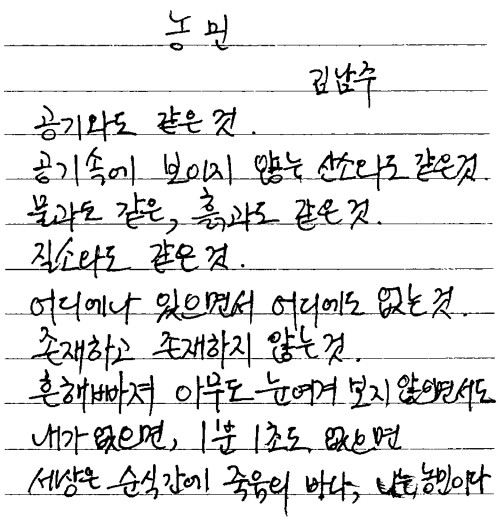 농민
김남주
공기와도 같은 것.
공기속에 보이지 않는 산소와도 같은것.
물과도 같은, 흙과도 같은 것.
질소와도 같은 것.
어디에나 있으면서 어디에도 없는 것.
존재하고 존재하지 않는 것.
흔해빠져 아무도 눈여겨 보지 않으면서도
내가 없으면, 1분 1초도 없으면
세상은 순식간에 죽음의 바다, 나는, 농민이다